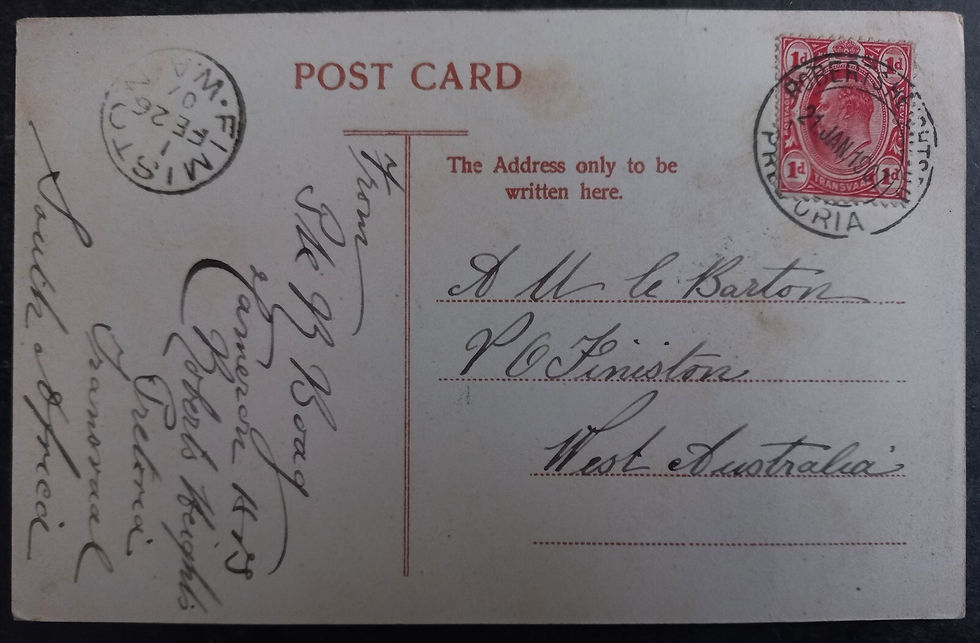 POST CARD
The Address only to be
written here.
1d 1d
1d 1d
TRANSVAAL
ROBERTS HEIGHTS
21 JAN
PRETORIA
FIMISTON
W.A
1
FE 26
A M C Barton
P O Finiston
West Australia
From
Pte B Boag
Cameron Hrs
Roberts Heights
Pretoria
Transvaal
South Africa